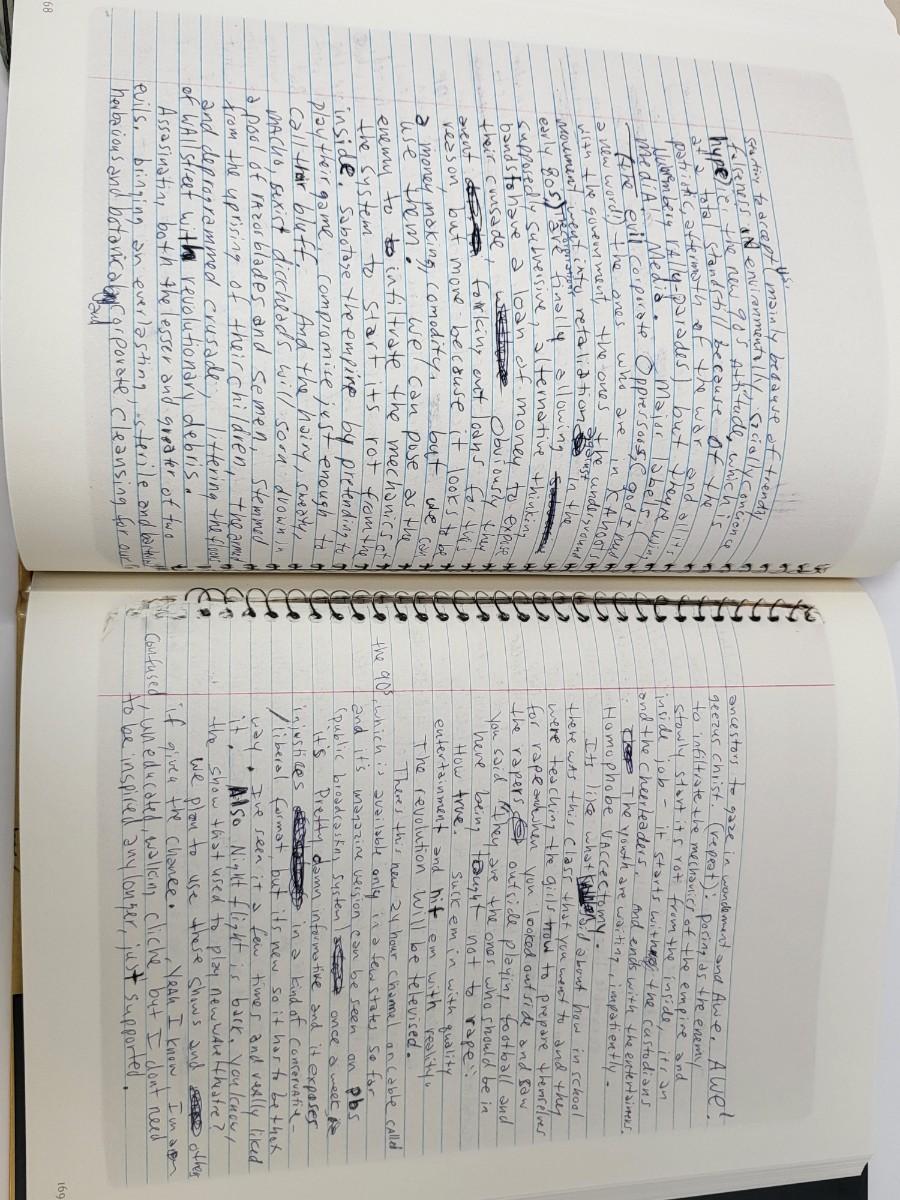 68
Starting to accept (mainly because of trendy
falseness in environmentally, Socially conscience
hype), the new 90s Attitude, which is
at a total standstill because of the
patriotic, aftermath of the war and all its
Military rally parades) but theyre winning
mediA. Media. Major labels. (
the evil corporate Oppressors (god I need
a new word!) the ones who are in Kahootz
with the government, the ones the underground
movement went into retaliation against in the
early 80s) are finally allowing
supposedly subversive, alternative thinking
bands to have a loan of money to expose
their crusade, Obviously they
arent forking out loans for this
reason, but more because it looks to be
a money making, commodity. but we can
use them. we can pose as the
enemy to infiltrate the mechanics of
the system to start its rot from the
inside. Sabotage the empire by pretending to
play their game. compromise just enough to
Call thier bluff. And the hairy, sweaty,
MAcho, sexist dickheads will soon drown in
a pool of razorblades and semen, stemmed
from the uprising of their children, the armed
and deprogrammed crusade, littering the floors
of WAll street with revolutionary debris.
Assasinating both the lesser and greater of two
evils. bringing an everlasting, sterile and
herbacious and botanical corporate cleansing for our
ancestors to gaze in wonderment and Awe. AWe!
geezus christ. (repeat). posing as the enemy
to infiltrate the mechanics of the empire and
slowly start its rot from the inside, its an
inside job - it starts with the custodians
and the cheerleaders. And ends with the entertainers.
The youth are waiting, impatiently.
Homophobe VAccectomy.
Its like what said about how in school
there was this class that you went to and they
were teaching the girls how to prepare themselves
for rape and when you looked outside and saw
the rapers outside playing football and
you said "they are the ones who should be in
here being taught not to rape".
How true. Suck em in with quality
entertainment and hit em with reality.
The revolution will be televised.
Theres this new 24 hour channel on cable called
the 90s, which is available only in a few states so far
and it's magazine version can be seen on pbs
(public broadcasting system) once a week
it's Pretty damn informative and it exposes
injustices in a kind of conservative -
/liberal format, but it's new so it has to be that
way. I've seen it a few times and really liked
it. Also Night flight is back. You know,
the show that used to play new wave theatre?
We plan to use these shows and other
if given the chance. YeAh I know, Im a
confused, uneducated, walking cliche but I dont need
to be inspired any longer, just supported.
169